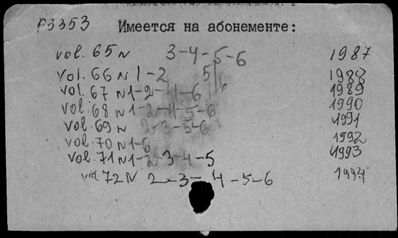 P3353 Имеется на абонементе:
vol. 65 N 3-4-5-6 1987
vol. 66 N 1-2 5/6 1988
vol. 67 N 1-2-4-6 1989
vol. 68 N 1-2-4-5-6 1990
vol. 69 N 2-3-5-6 1991
vol. 70 N 1-6 1992
vol. 71 N 1-2-3-4-5 1993
vol 72 N 2-3-4-5-6 1994